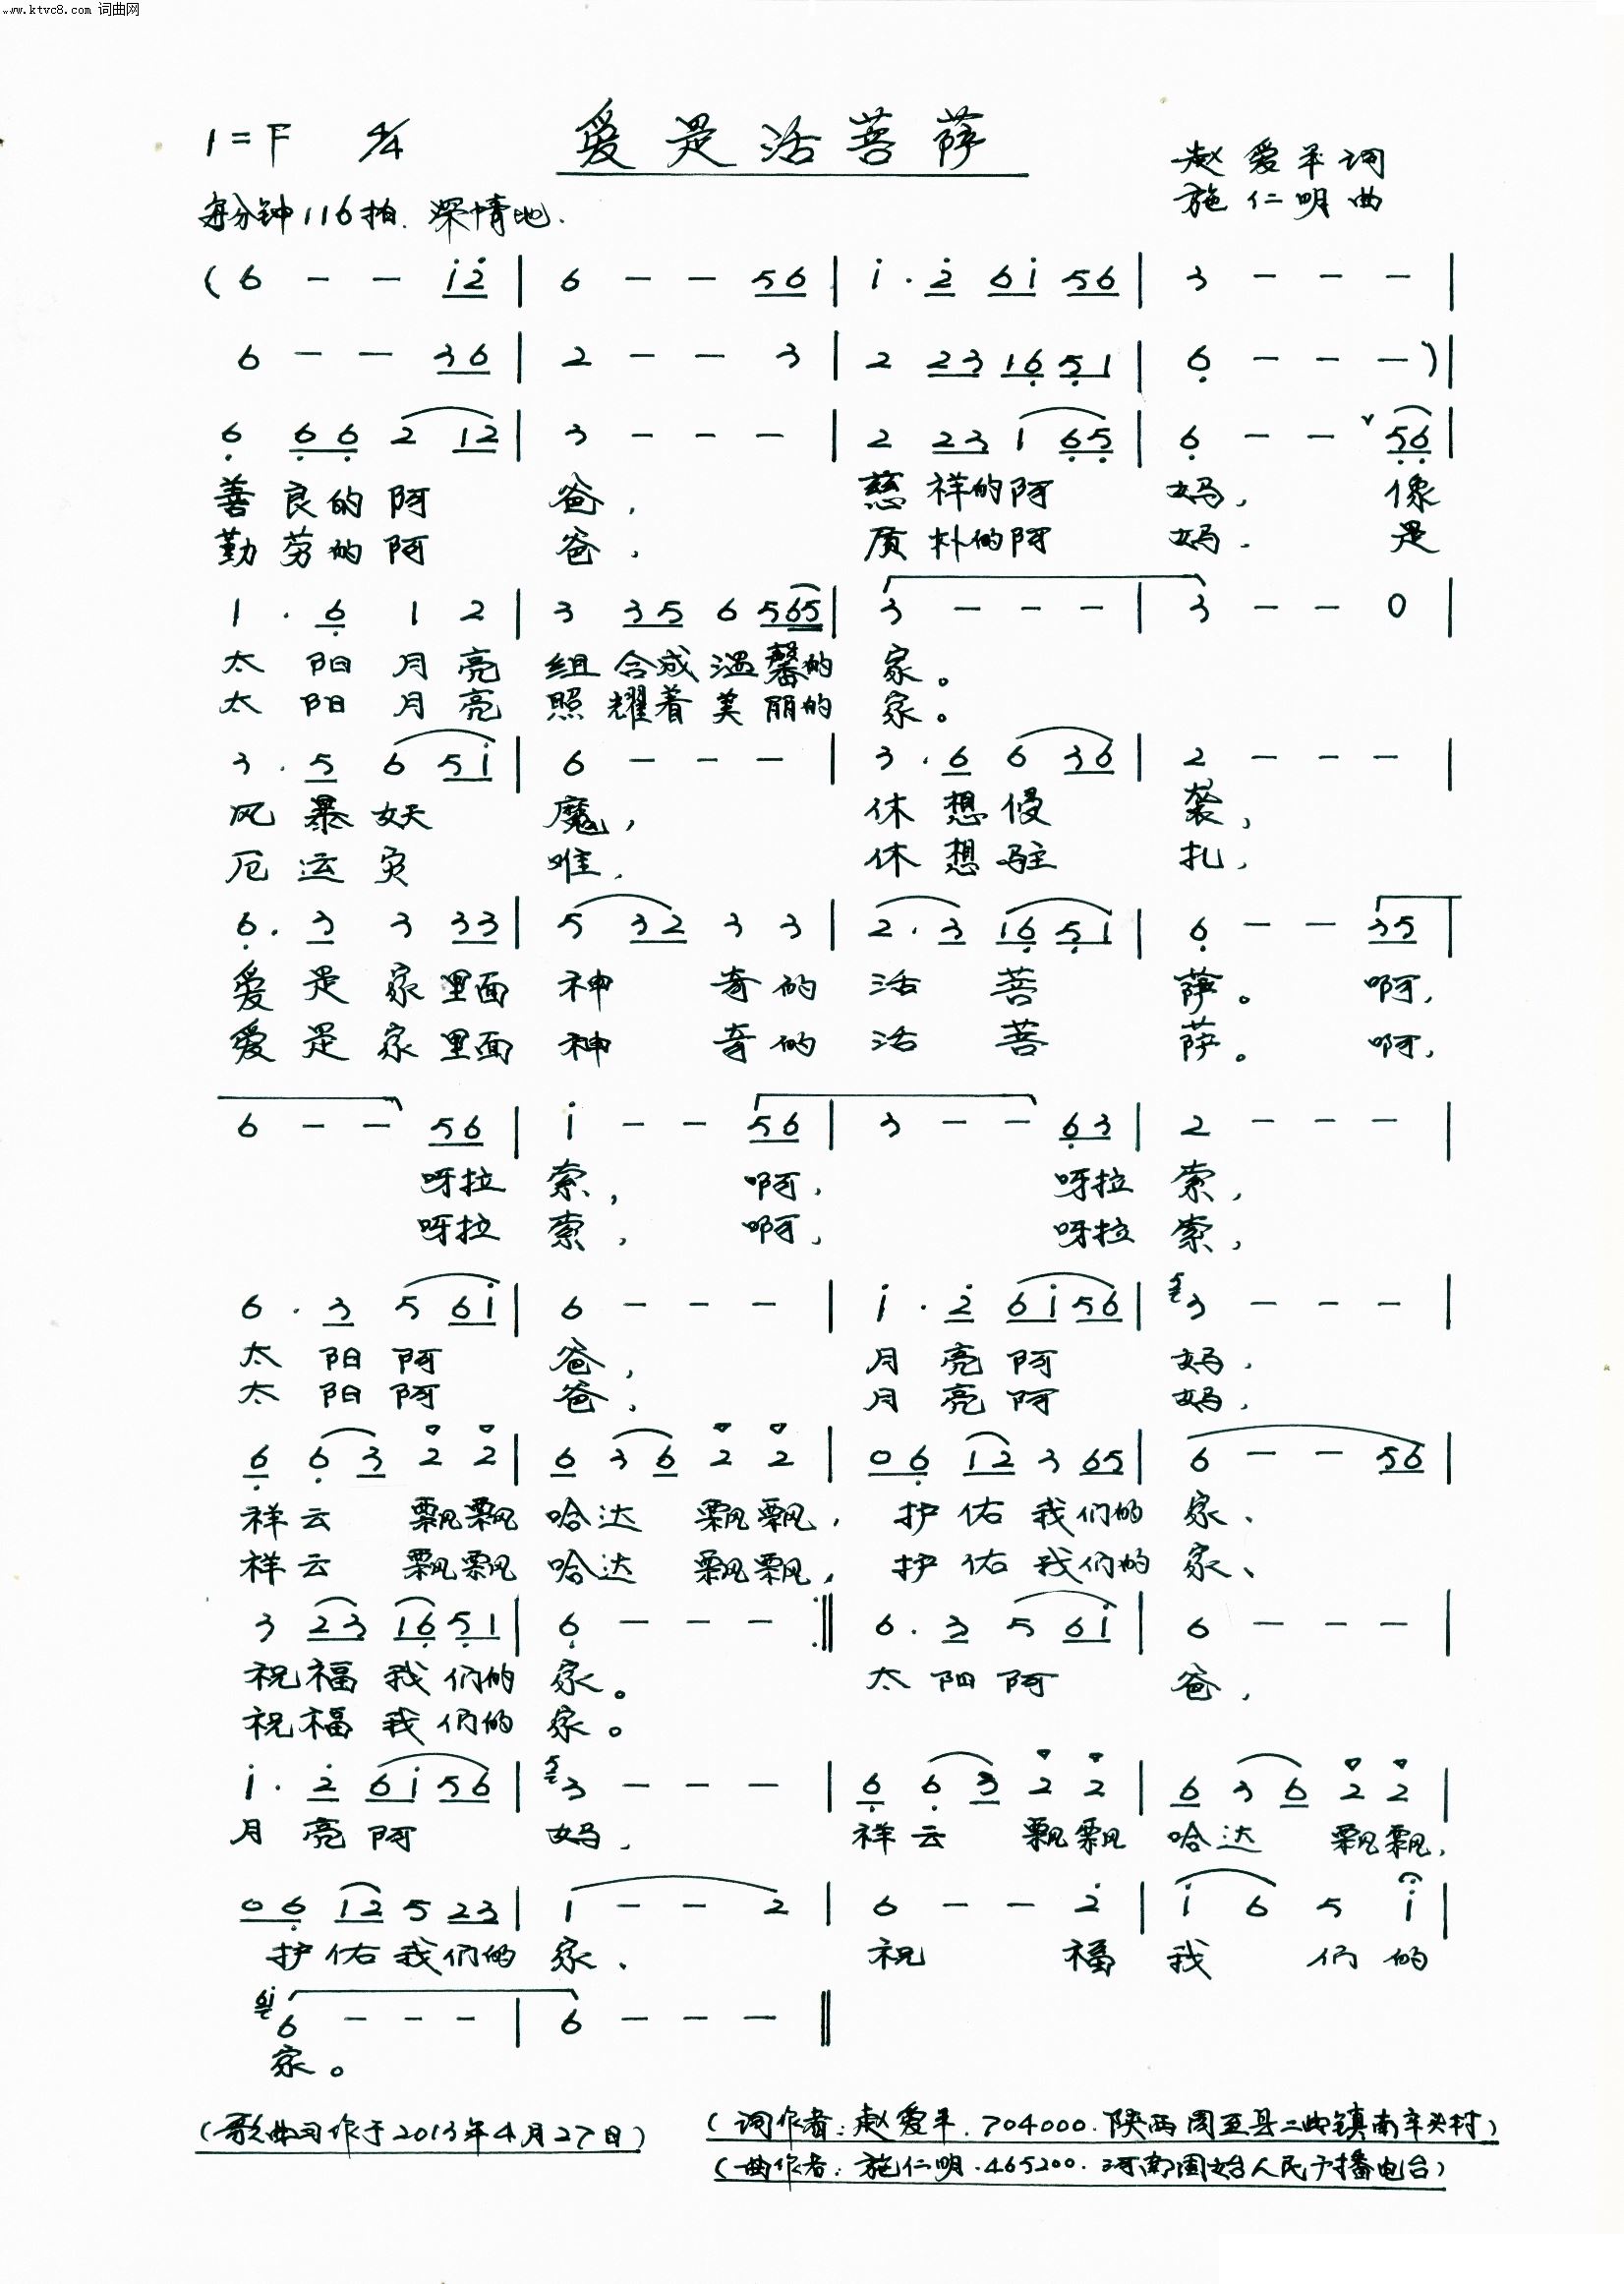 www.ktvc8.com 词曲网
1=F 4/4 爱是活菩萨
赵爱平词
施仁明曲
每分钟116拍. 深情地.
(6 - - i̇2̇ | 6 - - 56 | i̇·2̇ 6i̇ 56 | 3 - - - |
6 - - 36 | 2 - - 3 | 2 23 16̣ 5̣1 | 6̣ - - -)|
6̣ 6̣6̣ 2 12 | 3 - - - | 2 23 1 6̣5̣ | 6̣ - - ᵛ5̣6̣ |
善良的阿 爸, 慈祥的阿 妈, 像
勤劳的阿 爸, 质朴的阿 妈. 是
1·6̣ 1 2 | 3 35 6 565 | 3 - - - | 3 - - 0 |
太阳月亮 组合成温馨的 家。
太阳月亮 照耀着美丽的 家。
3·5 6 5i̇ | 6 - - - | 3·6 6 36 | 2 - - - |
风暴妖 魔, 休想侵 袭,
厄运灾 唯, 休想驻 扎,
6̣·3 3 33 | 5 32 3 3 | 2·3 16̣ 5̣1 | 6̣ - - 35 |
爱是家里面 神 奇的 活 菩 萨。 啊,
爱是家里面 神 奇的 活 菩 萨。 啊,
6 - - 56 | i̇ - - 56 | 3 - - 6̣3 | 2 - - - |
呀拉 索, 啊, 呀拉 索,
呀拉 索, 啊, 呀拉 索,
6·3 5 6i̇ | 6 - - - | i̇·2̇ 6i̇56 | ⁵3 - - - |
太阳阿 爸, 月亮阿 妈.
太阳阿 爸, 月亮阿 妈.
6̣ 6̣ 3 2 2 | 6 3 6 2 2 | 06̣ 12 3 65 | 6 - - 56 |
祥云 飘飘 哈达 飘飘, 护佑我们的 家、
祥云 飘飘 哈达 飘飘, 护佑我们的 家、
3 23 16̣ 5̣1 | 6̣ - - - :‖ 6·3 5 6i̇ | 6 - - - |
祝福我们的 家。 太阳阿 爸,
祝福我们的 家。
i̇·2̇ 6i̇ 56 | ⁵3 - - - | 6̣ 6̣ 3 2 2 | 6 3 6 2 2 |
月亮阿 妈, 祥云 飘飘 哈达 飘飘,
06̣ 12 5 23 | 1 - - 2 | 6 - - 2̇ | i̇ 6 5 i̇ |
护佑我们的 家、 祝 福 我 们的
⁶ⁱ6 - - - | 6 - - - ‖
家。
(歌曲习作于2013年4月27日)
(词作者:赵爱平.704000.陕西周至县二曲镇南辛头村)
(曲作者:施仁明.465200.河南固始人民广播电台)